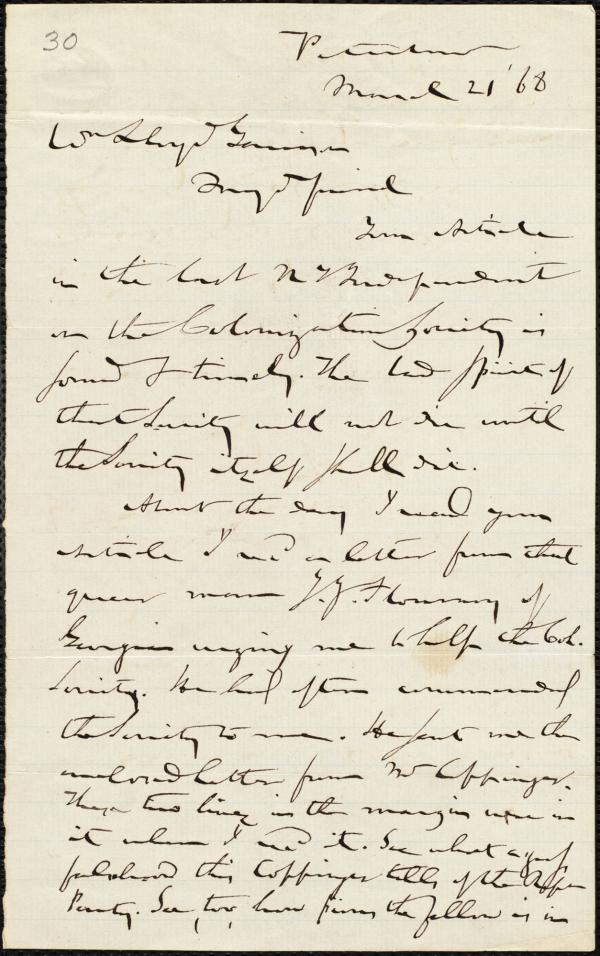 30
Peterboro
March 21 '68
Wm Lloyd Garrison
My d friend
Your Article
in the last N Y Independent
on the Colonization Society is
sound & timely. The bad spirit of
that Society will not die until
the Society itself shall die.
About the day I read your
Article I recd a letter from that
queer man J. J. Flournoy of
Georgia urging me to help the Col.
Society. He had often commended
the Society to me. He sent me the
inclosed letter from Mr Coppinger.
These two lines in the margin were in
it when I recd it. See what a
falsehood this Coppinger tells of the
Party. See, too, how pious the fellow is in